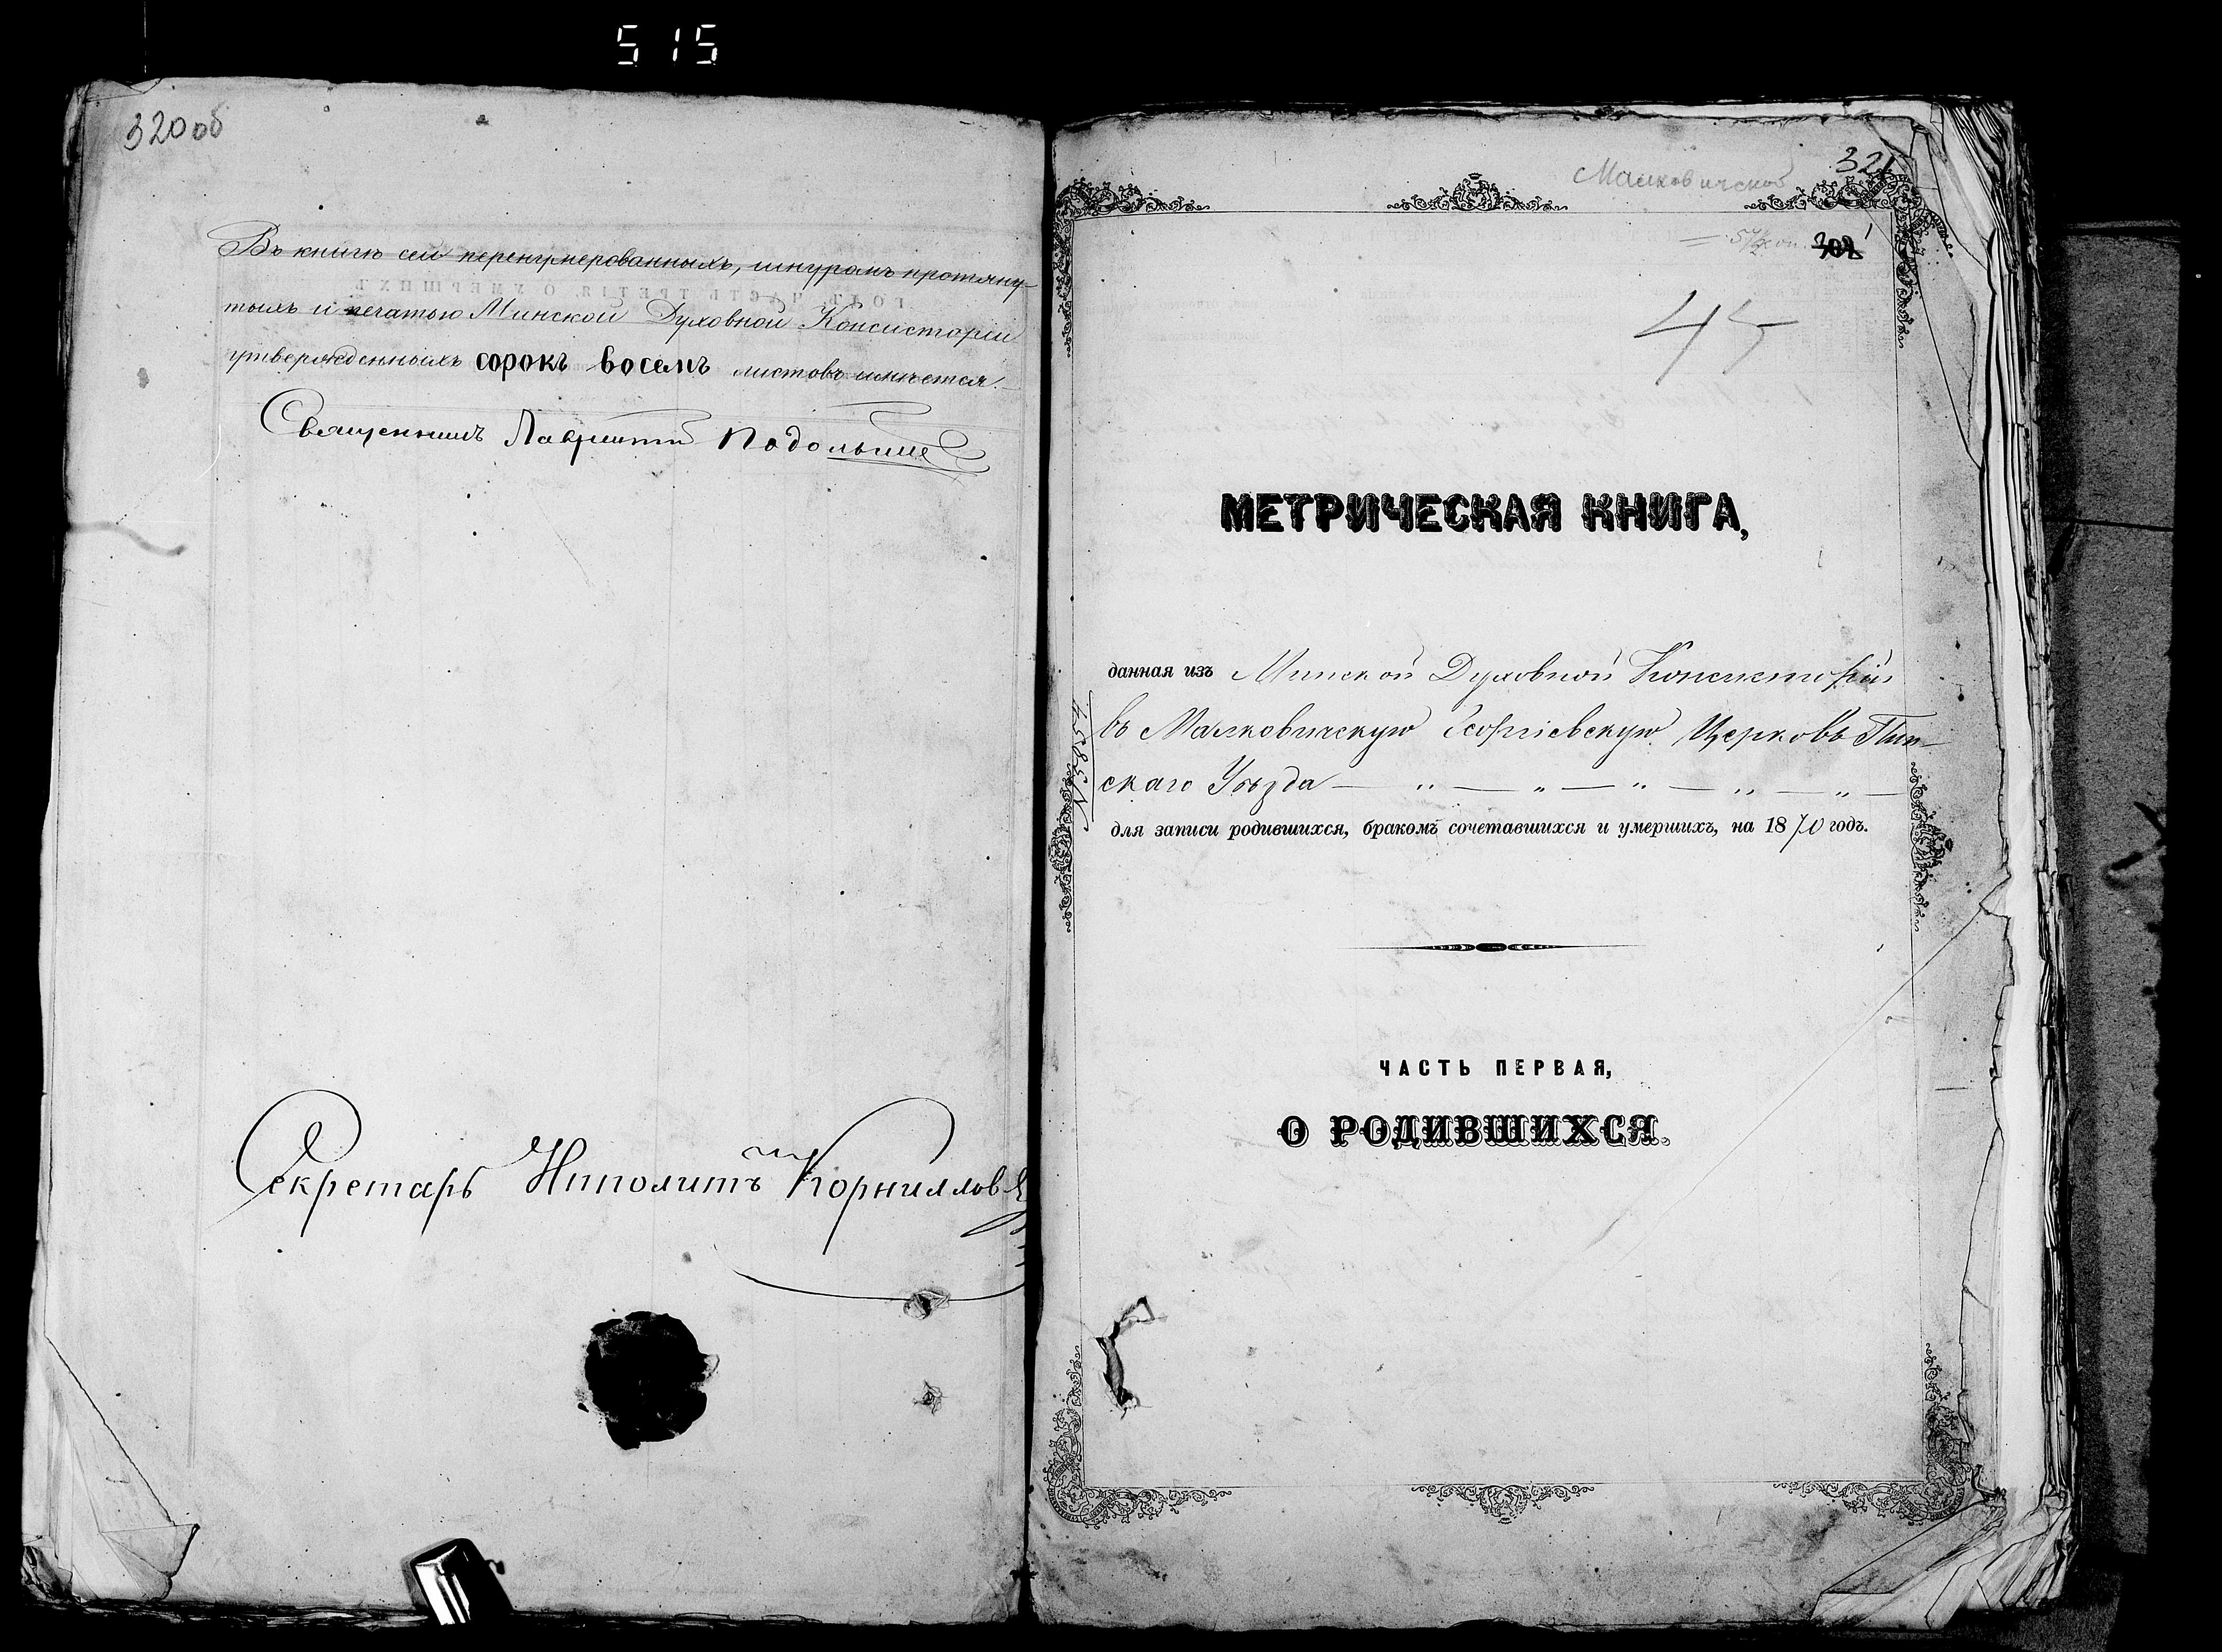 515
320об
Въ книгѣ сей перенумерованныхъ, шнуромъ протяну-
тыхъ и печатью Минской Духовной Консисторіи
утвержденныхъ сорокъ восемъ листовъ имѣется.
Священникъ Лаврентій
Секретарь Ипполитъ Корниллов
Малковичской
321
45
МЕТРИЧЕСКАЯ КНИГА,
данная изъ Минской Духовной Консисторіи
въ Малковичскую Георгіевскую Церковь Пин-
скаго Уѣзда — „ — „ — „ — „ — „ —
№5854
для записи родившихся, бракомъ сочетавшихся и умершихъ, на 1870 годъ.
ЧАСТЬ ПЕРВАЯ,
О РОДИВШИХСЯ.